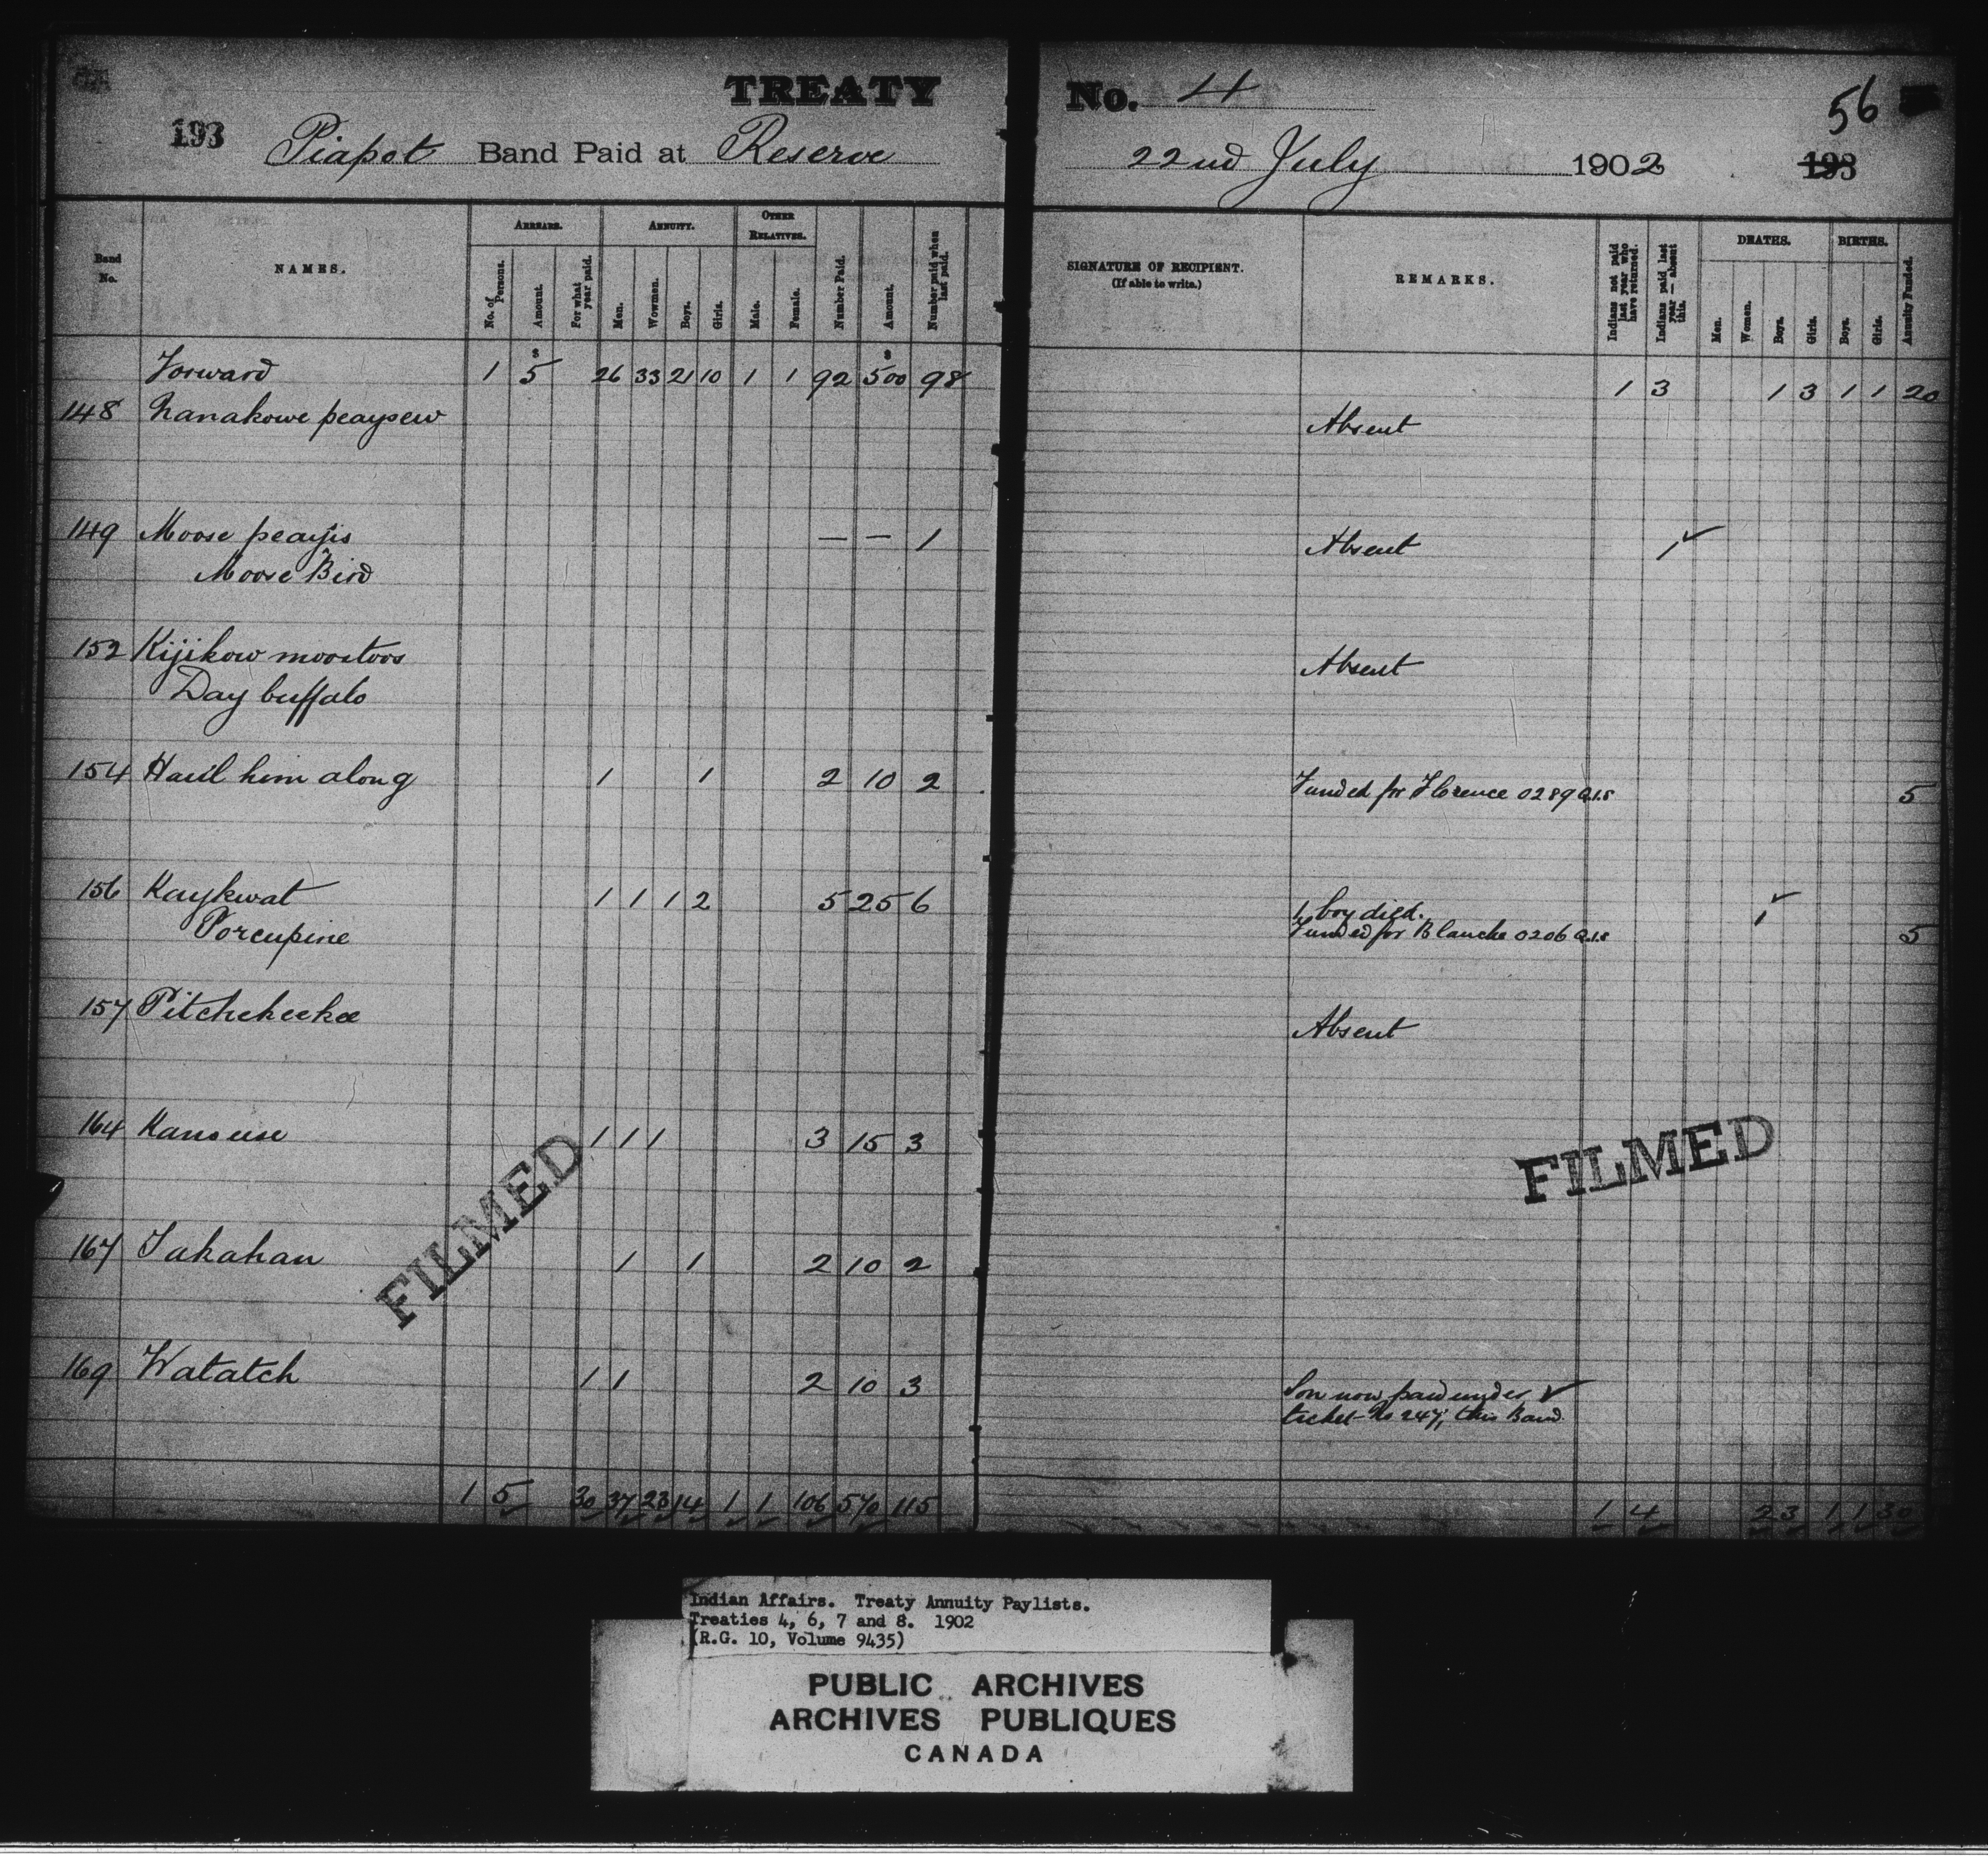 TREATY No. 4
56
193 Piapot Band Paid at Reserve 22nd July 1902 193
Band No. NAMES. ARREARS. No. of Persons. Amount. For what year paid. ANNUITY. Men. Wowmen. Boys. Girls. OTHER RELATIVES. Male. Female. Number Paid. Amount. Number paid when last paid. SIGNATURE OF RECIPIENT. (If able to write.) REMARKS. Indians not paid last year who have returned. Indians paid last year — absent this. DEATHS. Men. Women. Boys. Girls. BIRTHS. Boys. Girls. Annuity Funded.
Forward 1 $5 26 33 21 10 1 1 92 $500 98 1 3 1 3 1 1 20
148 Nanakowe peaysew Absent
149 Moose peayis — — 1 Absent 1 ✓
Moose Bird
152 Kijikow moostoos Absent
Day buffalo
154 Haul him along 1 1 2 10 2 Funded for Florence 0289 Q.I.S 5
156 Kaykwat 1 1 1 2 5 25 6 1 boy died. 1 ✓
Porcupine Funded for Blanche 0206 Q.I.S 5
157 Pitchekeekee Absent
164 Kanouse 1 1 1 3 15 3
167 Takahan 1 1 2 10 2
169 Watatch 1 1 2 10 3 Son now paid under ✓
ticket No 247, this Band
1 5 30 37 23 14 1 1 106 570 115 1 4 2 3 1 1 30
FILMED
FILMED
Indian Affairs. Treaty Annuity Paylists.
Treaties 4, 6, 7 and 8. 1902
(R.G. 10, Volume 9435)
PUBLIC ARCHIVES
ARCHIVES PUBLIQUES
CANADA